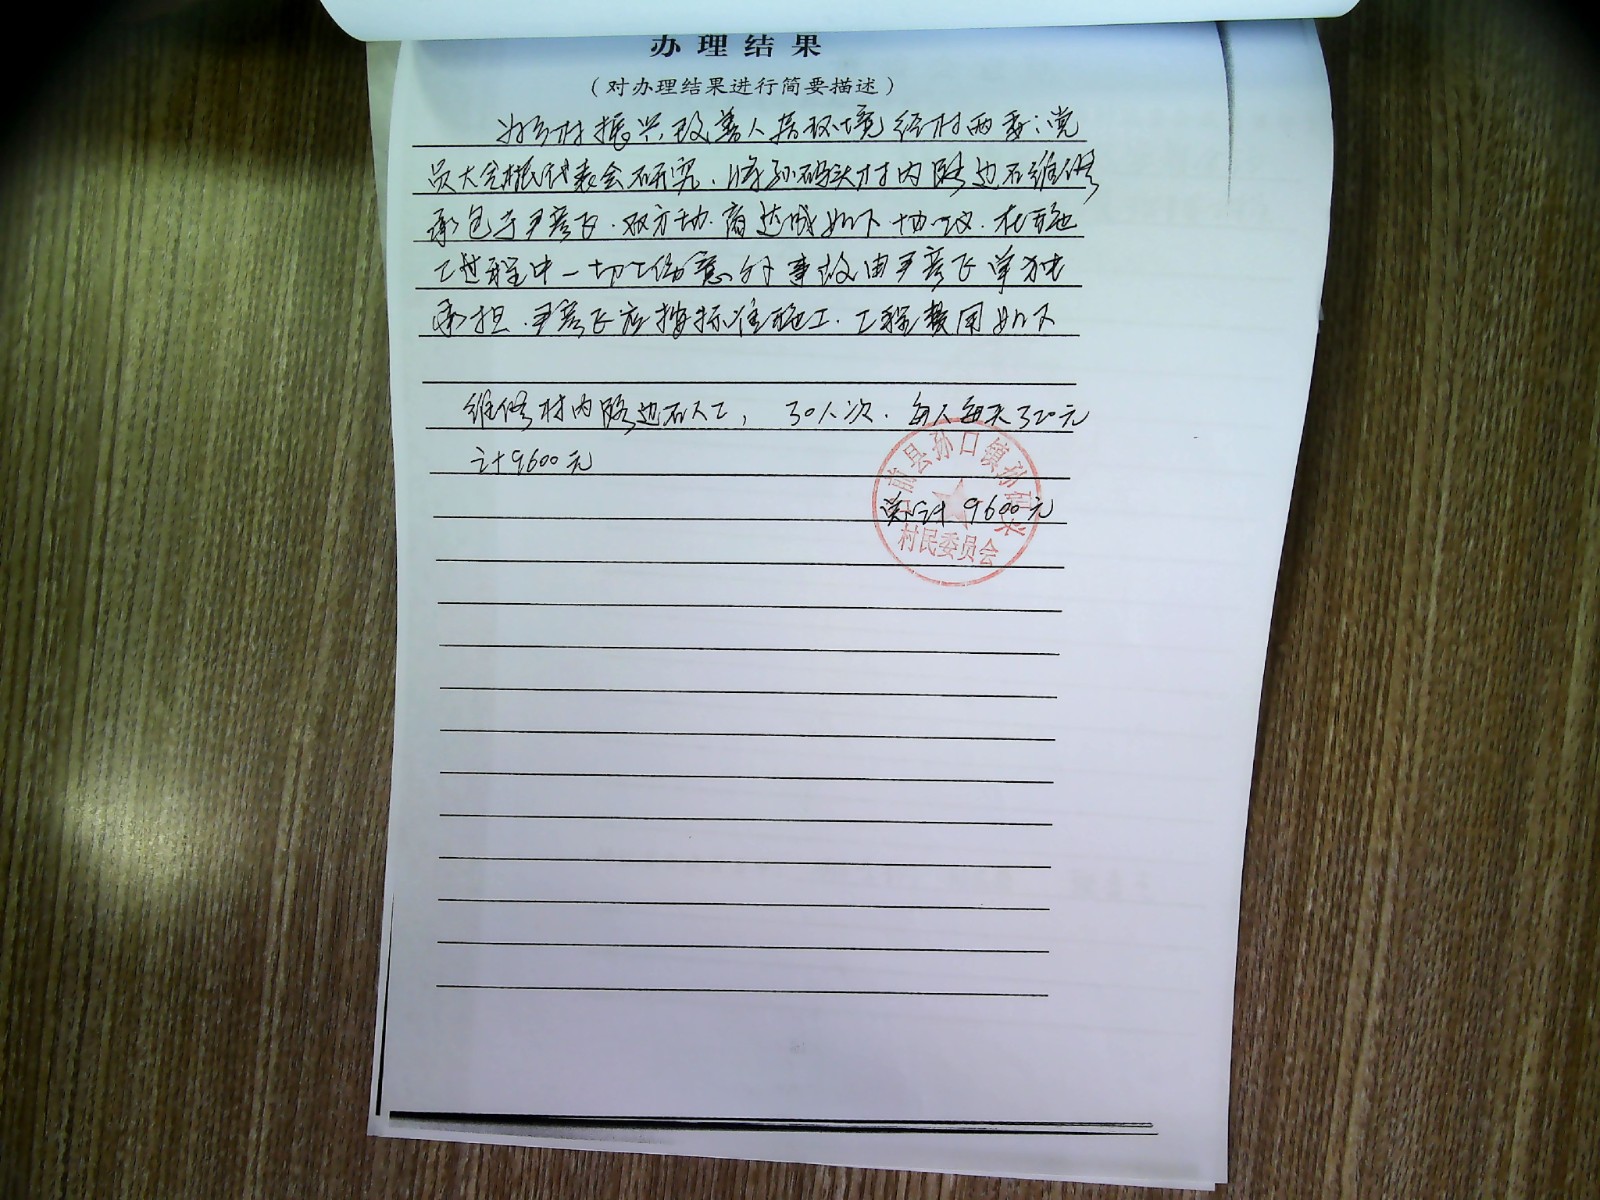 办理结果
（对办理结果进行简要描述）
为乡村振兴，改善人居环境经村两委、党
员大会村民代表会研究，将孙码头村内路边石维修
承包于尹彦飞，双方协商达成如下协议，在施
工过程中一切工伤意外事故由尹彦飞单独
承担，尹彦飞应按标准施工，工程费用如下
维修村内路边石人工，30人次，每人每天320元
计9600元
总计9600元
前县孙口镇孙码头
村民委员会